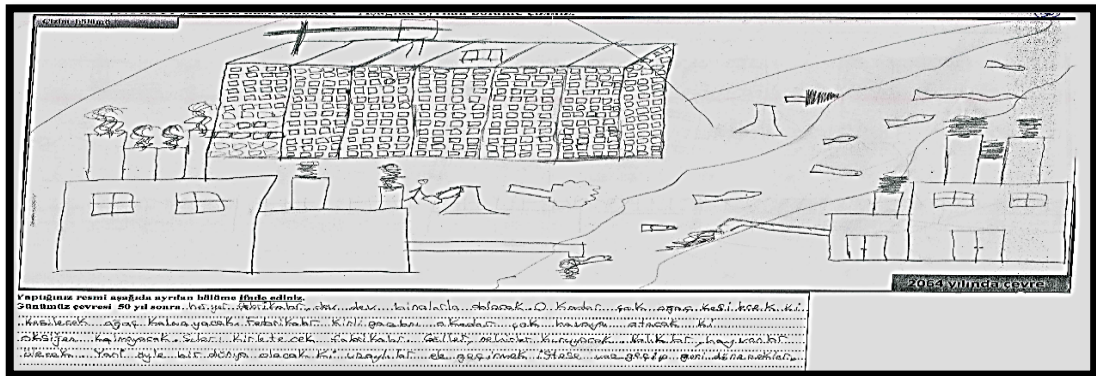 Çizim bölümü
2064 yılında çevre
Yaptığınız resmi aşağıda ayrılan bölüme ifade ediniz.
Günümüz çevresi 50 yıl sonra her yer fabrikalar, dev dev binalarla dolacak. O kadar çok ağaç kesilecek ki
kesilecek ağaç kalmayacak. Fabrikalar kirli gazını o kadar çok havaya atacak ki
oksijen kalmayacak. Suları kirletecek fabrikalar. Göller, nehirler kuruyacak. Balıklar, hayvanlar
ölecek. Yani öyle bir dünya olacak ki uzaylılar ele geçirmek istese vazgeçip geri dönecekler.